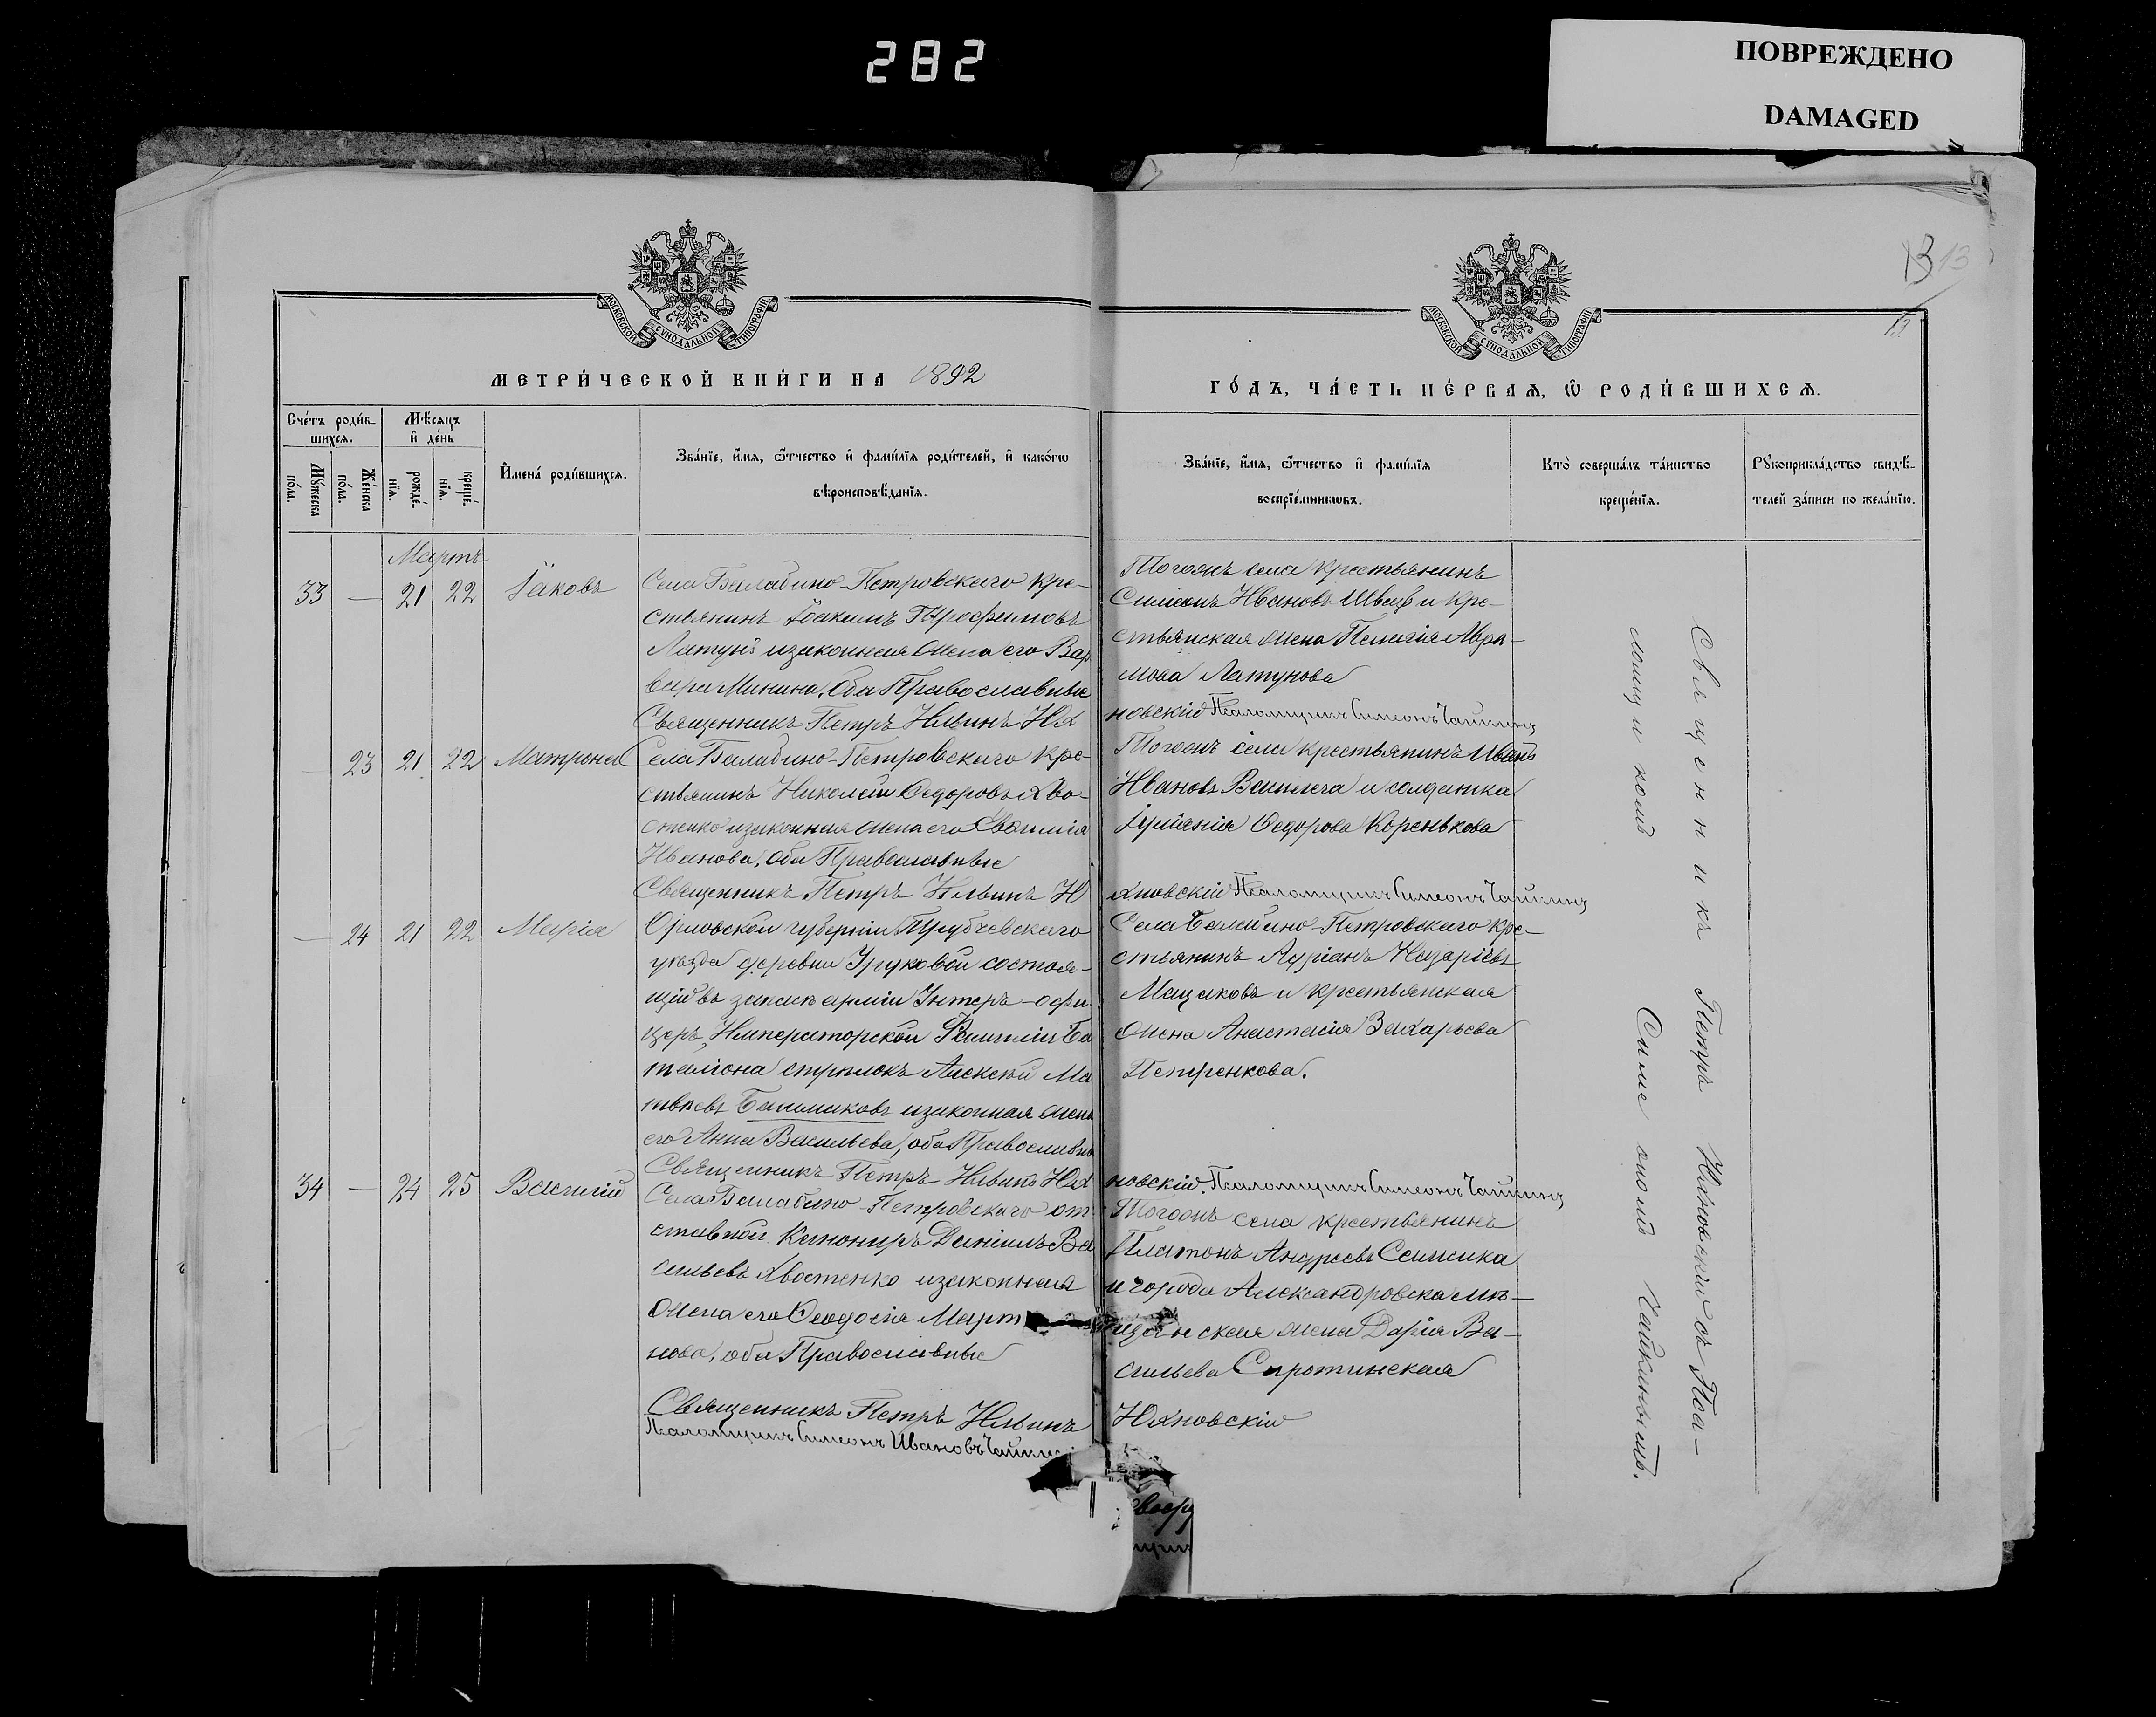 282
ПОВРЕЖДЕНО
DAMAGED
13 13
МОСКОВСКОЙ СѴНОДАЛЬНОЙ ТИПОГРАФІИ
МОСКОВСКОЙ СѴНОДАЛЬНОЙ ТИПОГРАФІИ
МЕТРИ́ЧЕСКОЙ КНИ́ГИ НА 1892
ГО́ДЪ, ЧА́СТЬ ПЕ́РВАѦ, Ѽ РОДИ́ВШИХСѦ.
Сче́тъ роди́в-
шихся.
Мѣсяцъ
и҆ де́нь
Мꙋжеска
по́ла.
Же́нска
по́ла.
рожде́-
нїя.
креще́-
нїя.
И҆мена̀ роди́вшихся.
Зва́нїе, и҆́мя, ѻ҆́тчество и҆ фами́лїя роди́телей, и҆ како́гѡ
вѣроисповѣ́данїя.
Зва́нїе, и҆́мя, ѻ҆́тчество и҆ фами́лїя
воспрїе́мникѡвъ.
Кто̀ соверша́лъ та́инство
креще́нїя.
Рꙋкоприкла́дство свидѣ́-
телей за́писи по жела́нїю.
Мартъ
33 — 21 22 Іаковъ
Села Балабино-Петровскаго кре-
стьянинъ Іоакимъ Трофимовъ
Латунъ и законная жена его Вар
вара Минина, оба Православные
Священникъ Петръ Ильинъ Ях
Тогожъ села крестьянинъ
Симеонъ Ивановъ Швецъ и кре-
стьянская жена Пелагія Авра-
мова Латунова
новскій Псаломщикъ Симеонъ Чайкинъ
— 23 21 22 Матрона
Села Балабино-Петровскаго кре-
стьянинъ Николай Ѳедоровъ Хво-
стенко и законная жена его Евѳимія
Иванова, оба Православные
Священникъ Петръ Ильинъ Я
Тогожъ села крестьянинъ Иванъ
Ивановъ и солдатка
Іуліанія Ѳедорова Коренькова
хновскій Псаломщикъ Симеонъ Чайкинъ
— 24 21 22 Марія
Орловской губерніи Трубчевскаго
уѣзда деревни состоя-
щій въ запасѣ арміи Унтеръ-офи
церъ, Императорской Фамиліи Ба
таліона стрѣлокъ Алексѣй Ма
твѣевъ Башмаковъ и законная жена
его Анна Васильева, оба Православные
Священникъ Петръ Ильинъ Ях
Села Балабино-Петровскаго кре-
стьянинъ Адріанъ Назаріевъ
Мацаковъ и крестьянская
жена Анастасія Захарьева
Петренкова.
новскій. Псаломщикъ Симеонъ Чайкинъ
34 — 24 25 Василій
Села Балабино-Петровскаго от
ставной Канониръ Даніилъ Ва
сильевъ Хвостенко и законная
жена его Ѳеодосія Март
нова, оба Православные
Священникъ Петръ Ильинъ
Псаломщикъ Симеонъ Ивановъ Чайкинъ
Тогожъ села крестьянинъ
Платонъ Андреевъ
и города Александровска мѣ-
щанская жена Дарія Ва-
сильева Сиротинская
Яхновскій
Священникъ Петръ Яхновскій съ Пса-
ломщикомъ Симеономъ Чайкинымъ.